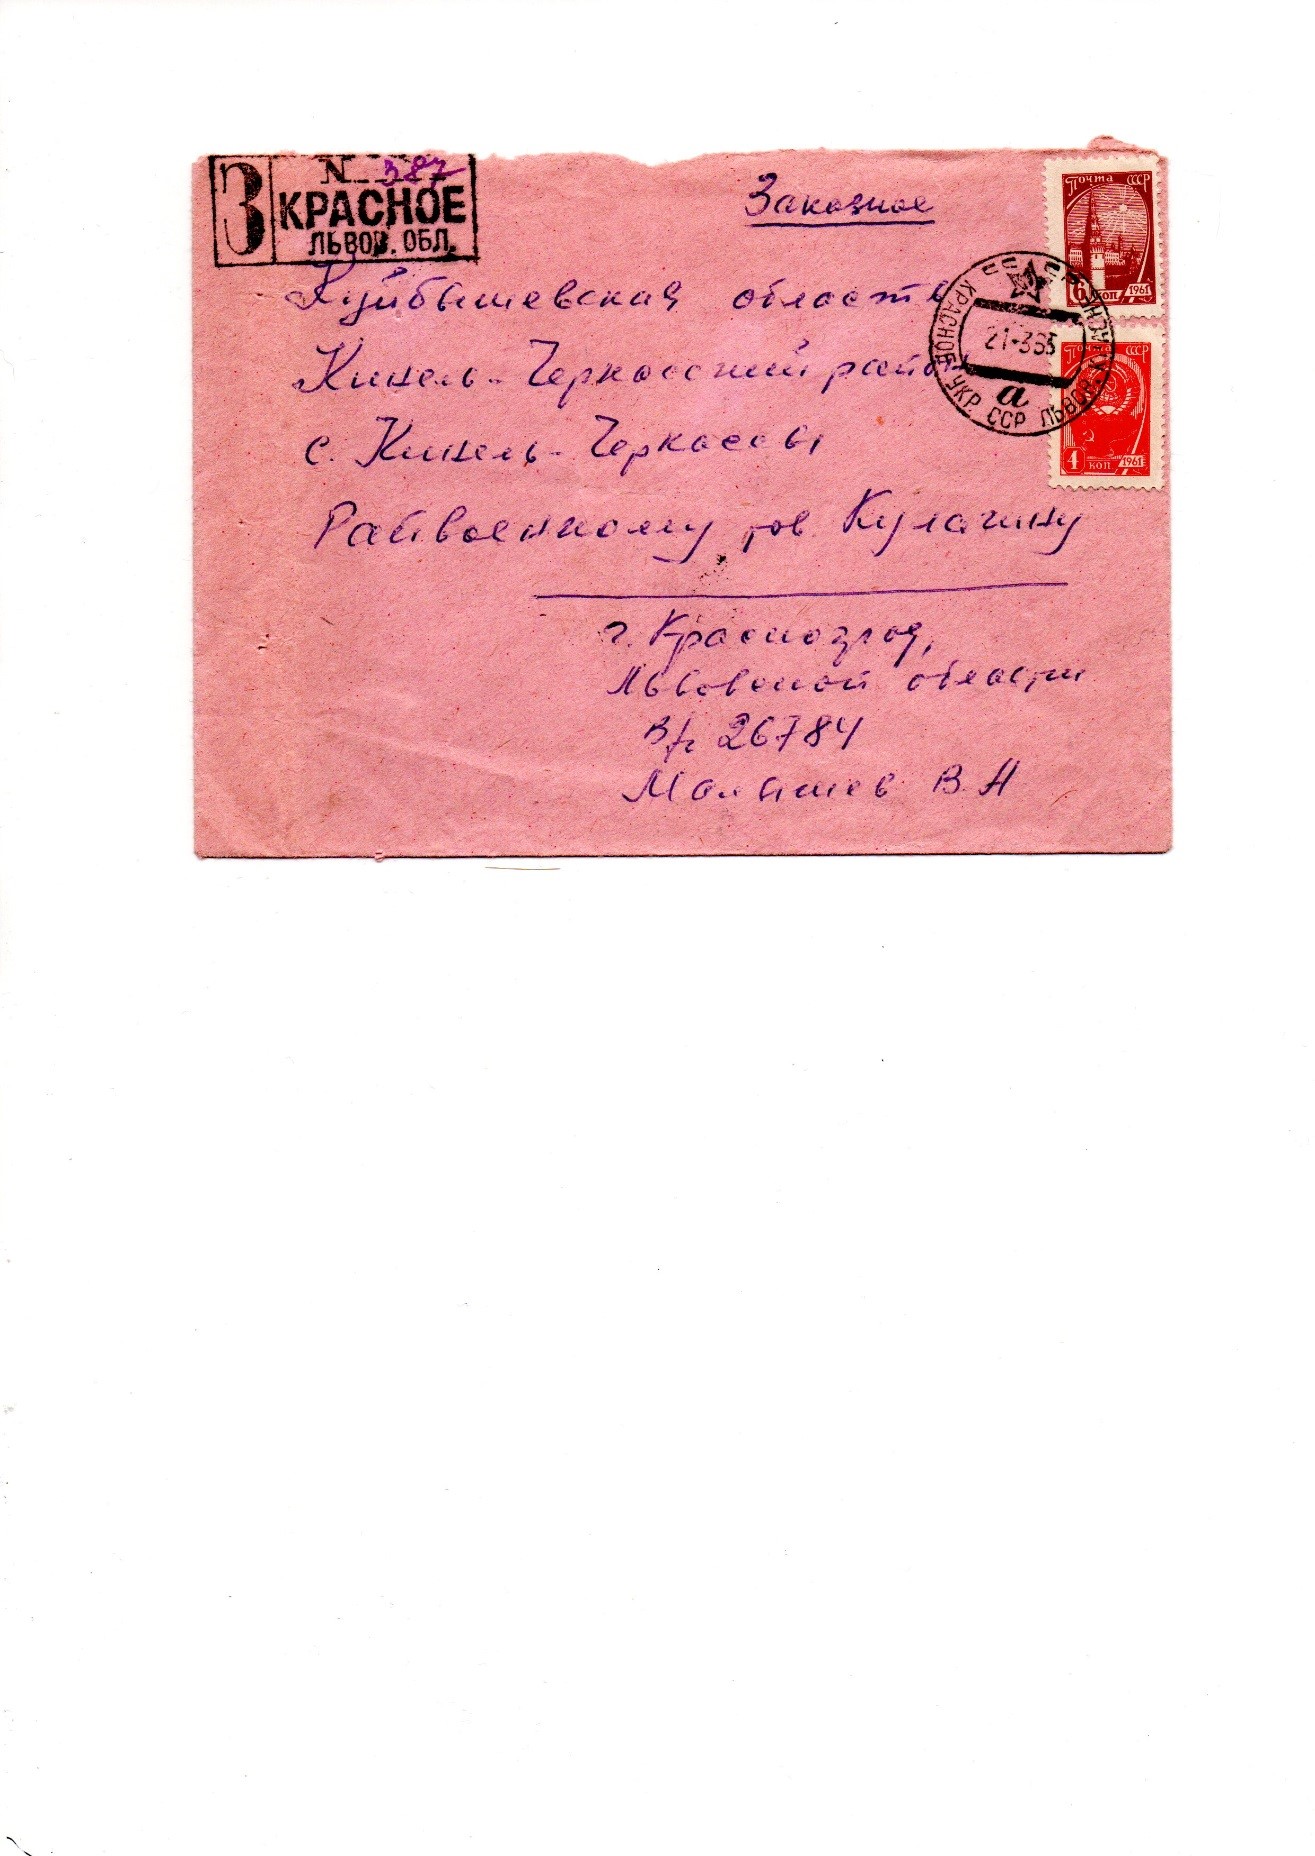 N 387
З КРАСНОЕ
ЛЬВОВ. ОБЛ.
Заказное
Почта СССР
6 коп 1961
Куйбышевская область
Кинель-Черкасский район
с. Кинель-Черкассы
КРАСНОЕ УКР. ССР ЛЬВОВ.
21-3
а
Почта СССР
4 коп 1961
Райвоенкому тов. Кулагину
г. Красноград,
Львовской области
в/ч 26784
Малышев В.Н